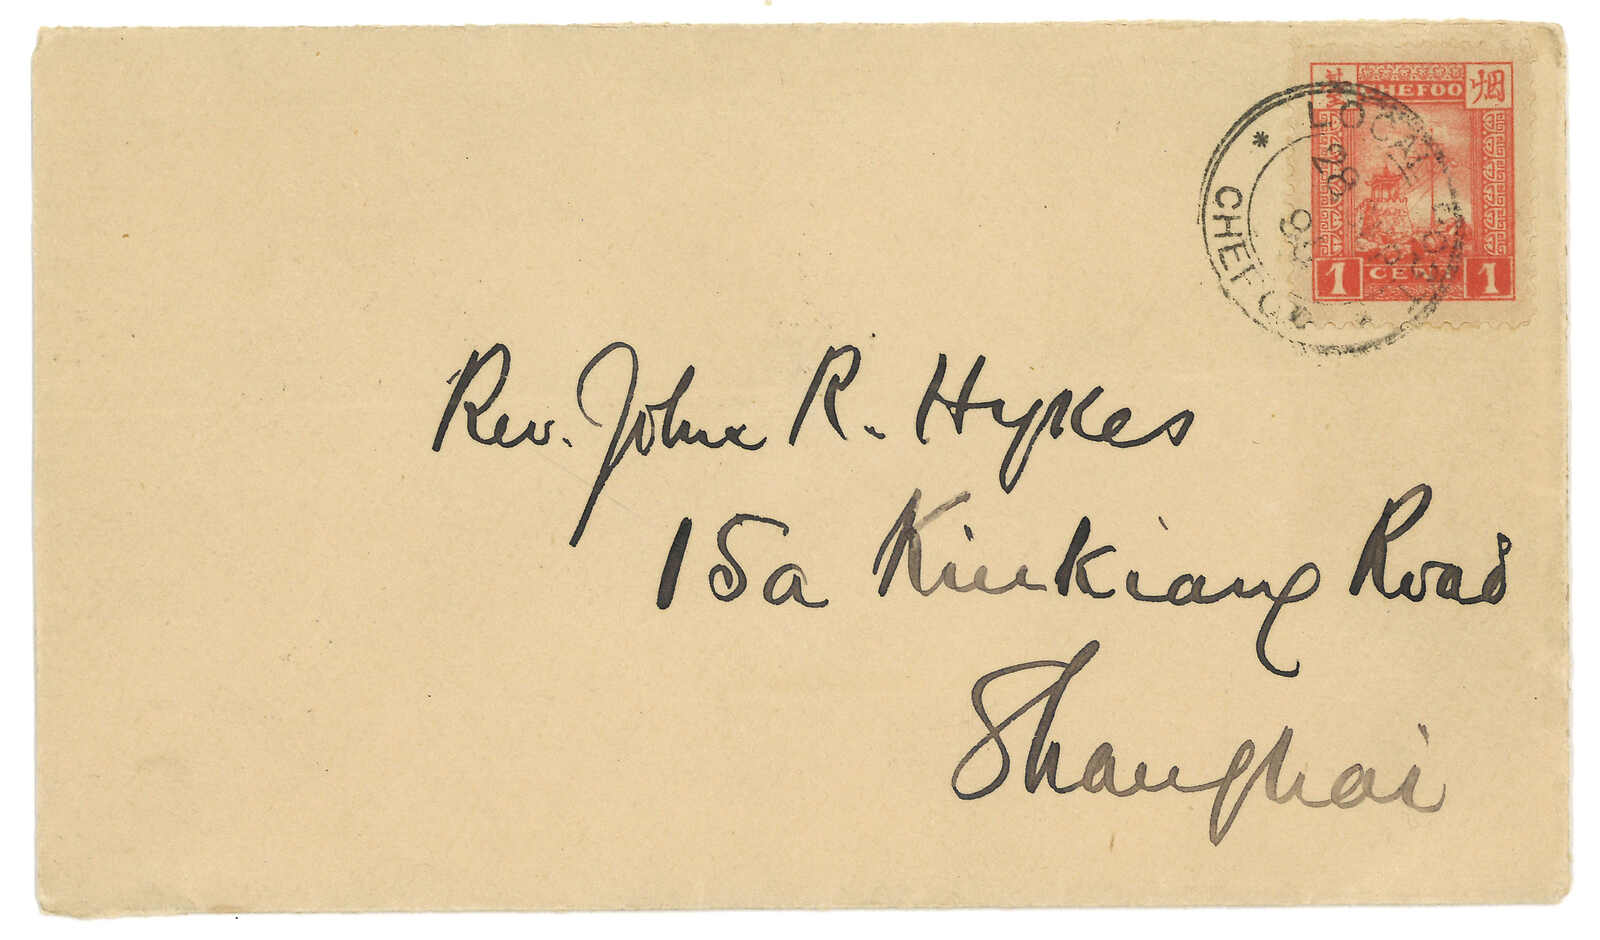 臺 CHEFOO 烟
1 CENT 1
LOCAL POST
28
CHEFOO
Rev. John R. Hykes
15a Kiukiang Road
Shanghai